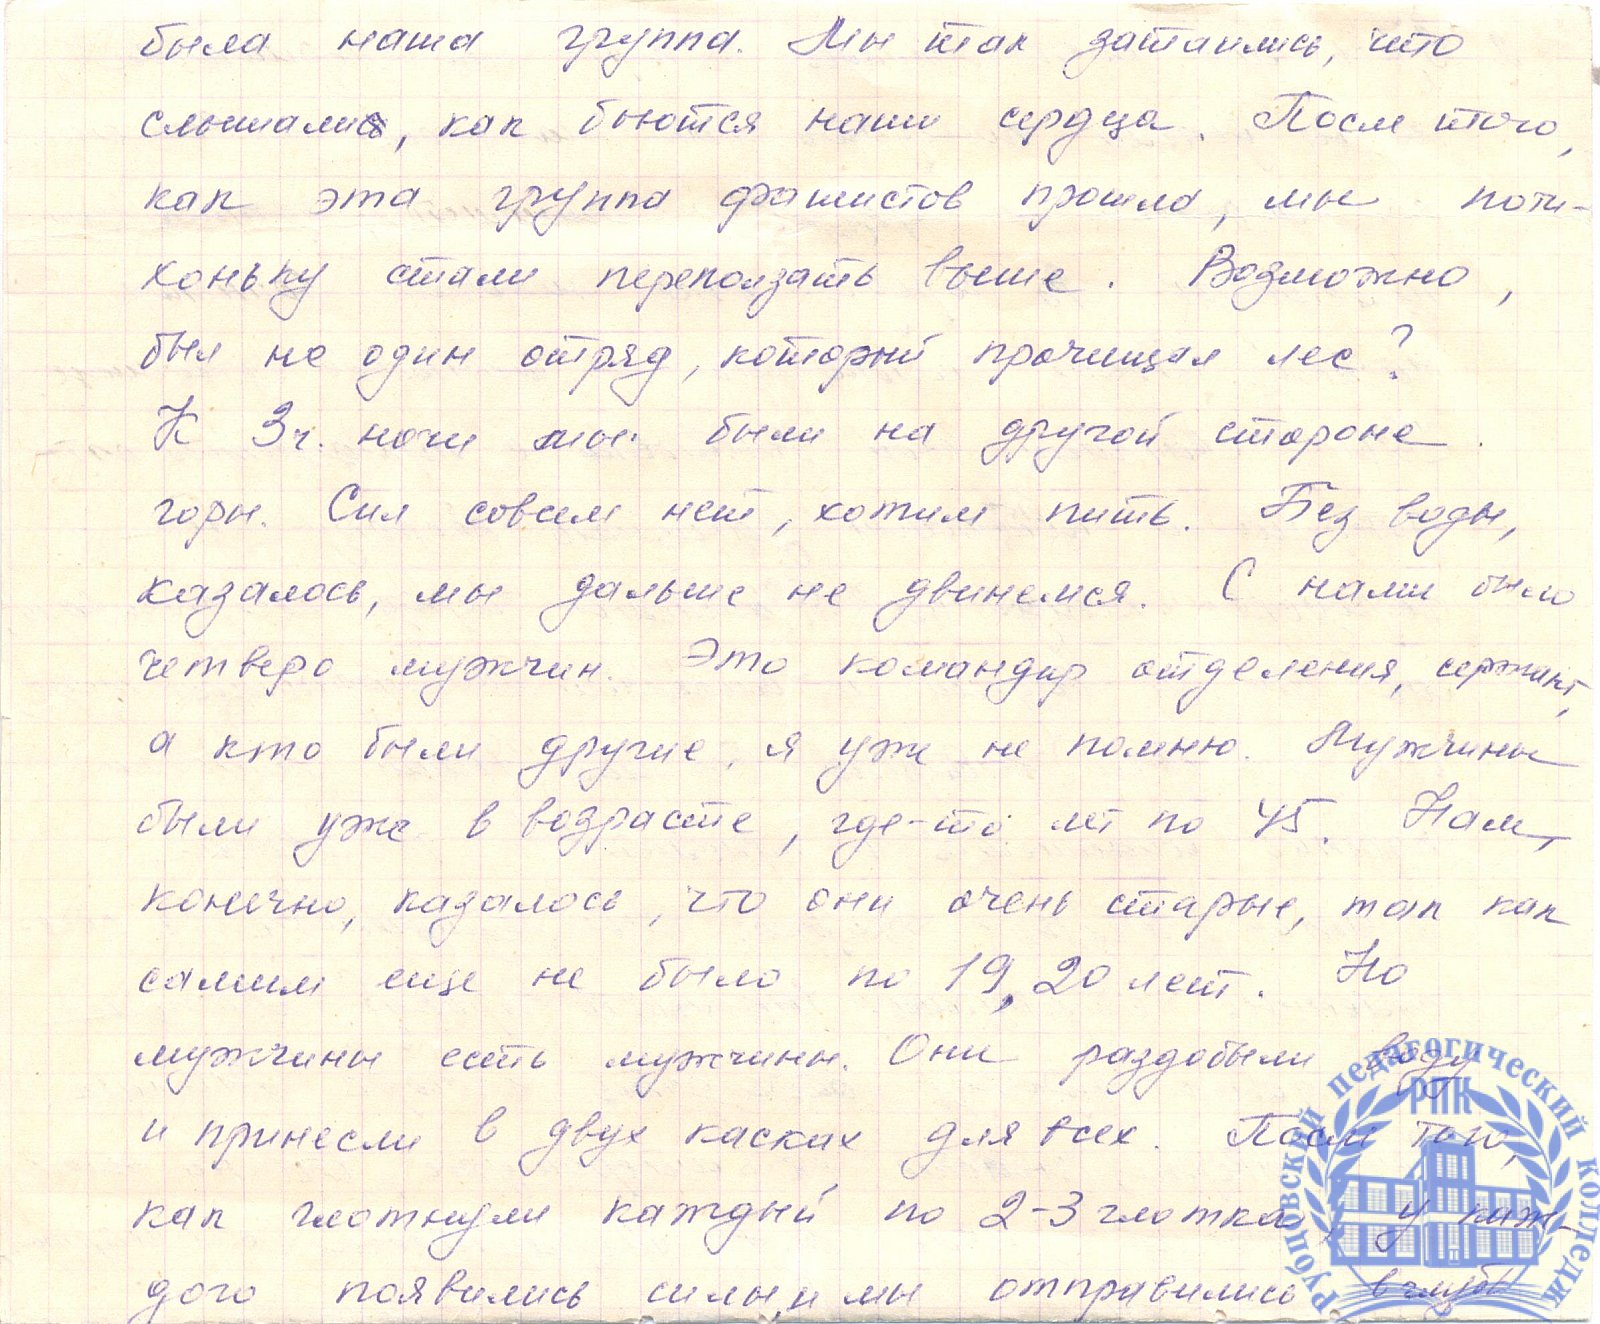 была наша группа. Мы так затаились, что
слышали, как бьются наши сердца. После того,
как эта группа фашистов прошла, мы поти-
хоньку стали переползать выше. Возможно,
был не один отряд, который прочищал лес?
К 3 ч. ночи мы были на другой стороне
горы. Сил совсем нет, хотим пить. Без воды,
казалось, мы дальше не двинемся. С нами было
четверо мужчин. Это командир отделения, сержант,
а кто были другие, я уже не помню. Мужчины
были уже в возрасте, где-то лет по 45. Нам,
конечно, казалось, что они очень старые, так как
самим еще не было по 19, 20 лет. Но
мужчины есть мужчины. Они раздобыли воду
и принесли в двух касках для всех. После того,
как глотнули каждый по 2-3 глотка, у каж-
дого появились силы, и мы отправились вглубь
Рубцовский педагогический колледж
РПК